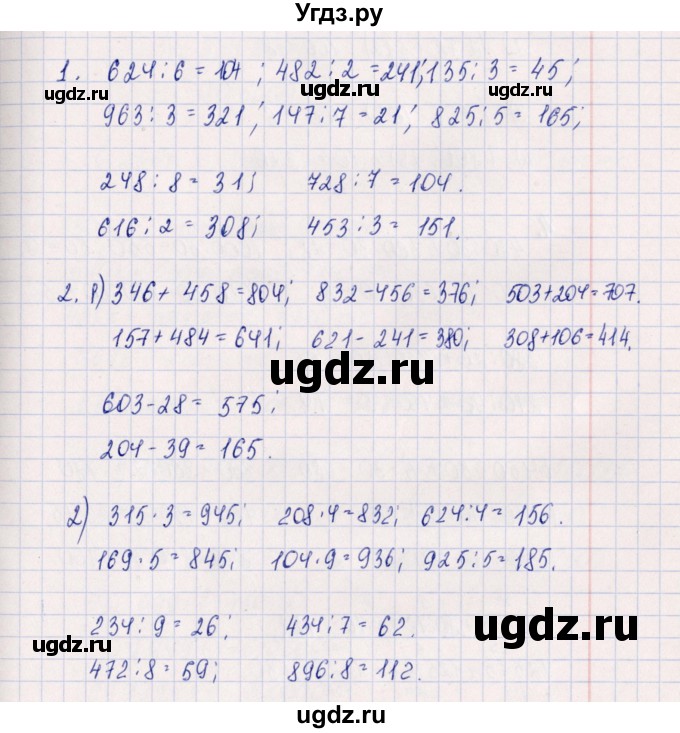 Угдз.ру
1. 624:6=104; 482:2=241; 135:3=45;
ugdz.ru ugdz.ru ugdz.ru
963:3=321; 147:7=21; 825:5=165;
248:8=31; 728:7=104.
616:2=308; 453:3=151.
2. 1) 346+458=804; 832-456=376; 503+204=707.
157+484=641; 621-241=380; 308+106=414.
ugdz.ru ugdz.ru
603-28=575;
204-39=165.
ugdz.ru
2) 315·3=945; 208·4=832; 624:4=156.
169·5=845; 104·9=936; 925:5=185.
234:9=26; 434:7=62.
ugdz.ru ugdz.ru
472:8=59; 896:8=112.
ugdz.ru